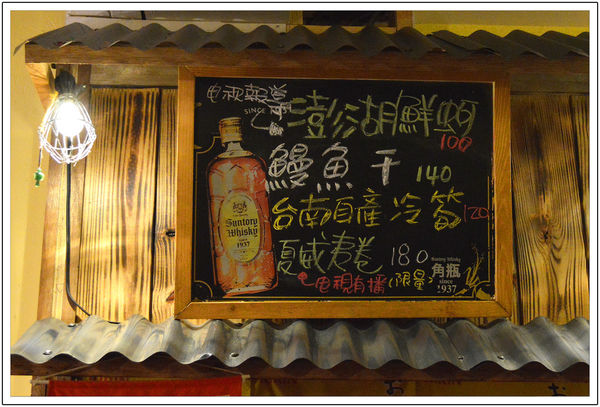 電視報導
SINCE
澎湖鮮蚵
100
鰻魚干 140
台南自產冷筍 120
Suntory
Whisky
SINCE
1937
夏威夷卷 180
Suntory Whisky
角瓶
since
1937
電視有播(限量)
お